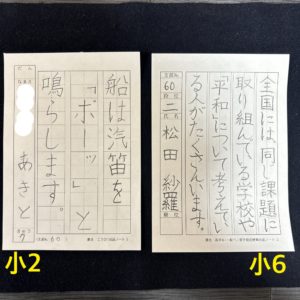 船は汽笛を
「ボーッ」と
鳴らします。
あきと
小2
全国には、同じ課題に
取り組んでいる学校や
「平和」について考えてい
る人がたくさんいます。
60
二
松田 紗羅
小6